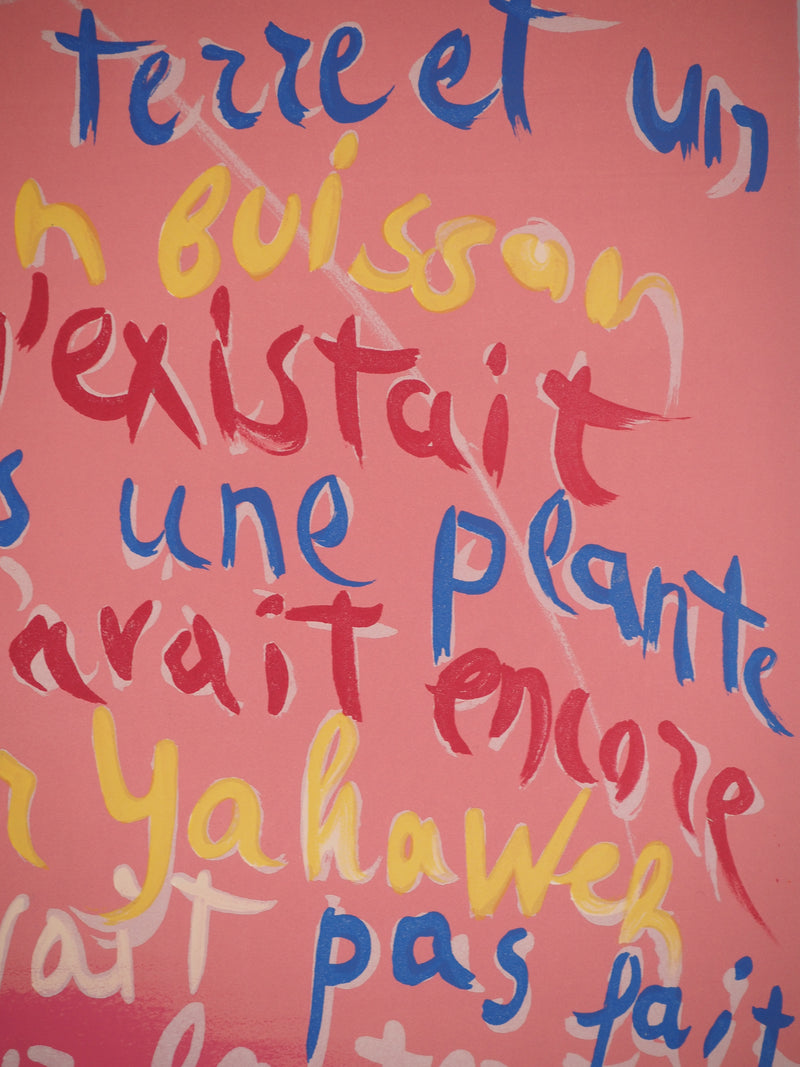 terre et un
n buisson
n'existait
s une plante
avait encore
r Yahaweh
vait pas fait